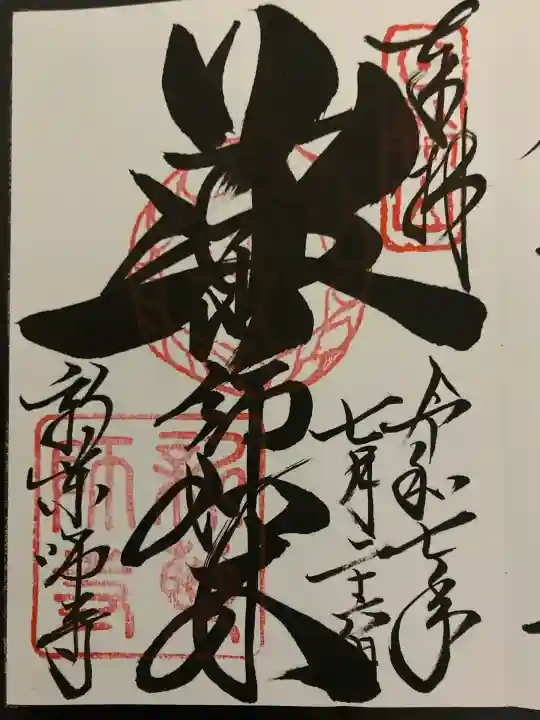 奉拝
令和七年
七月二十六日
薬師如来
新薬師寺